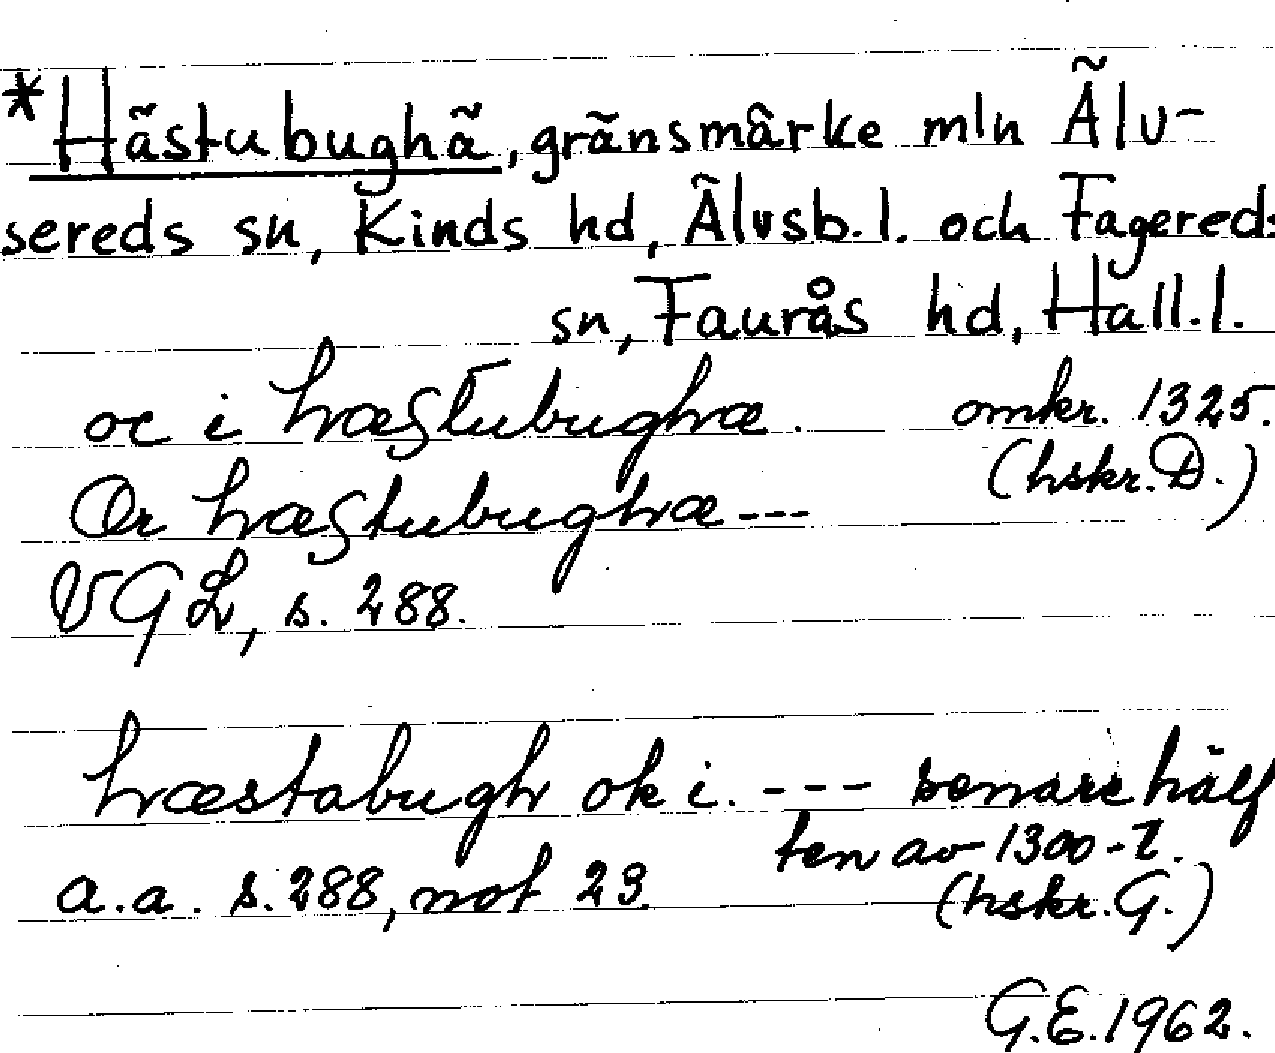 *Hästubughä, gränsmärke mln Älv-
sereds sn, Kinds hd, Älvsb. l. och Fagereds
sn, Faurås hd, Hall. l.
oc i hæstubughæ. omkr. 1325.
(hskr. D.)
Or hæstubughæ ---
VGL, s. 288.
hæstabugh ok i. --- senare hälf
ten av 1300-t.
a.a. s. 288, not 23. (hskr. G.)
G.E. 1962.